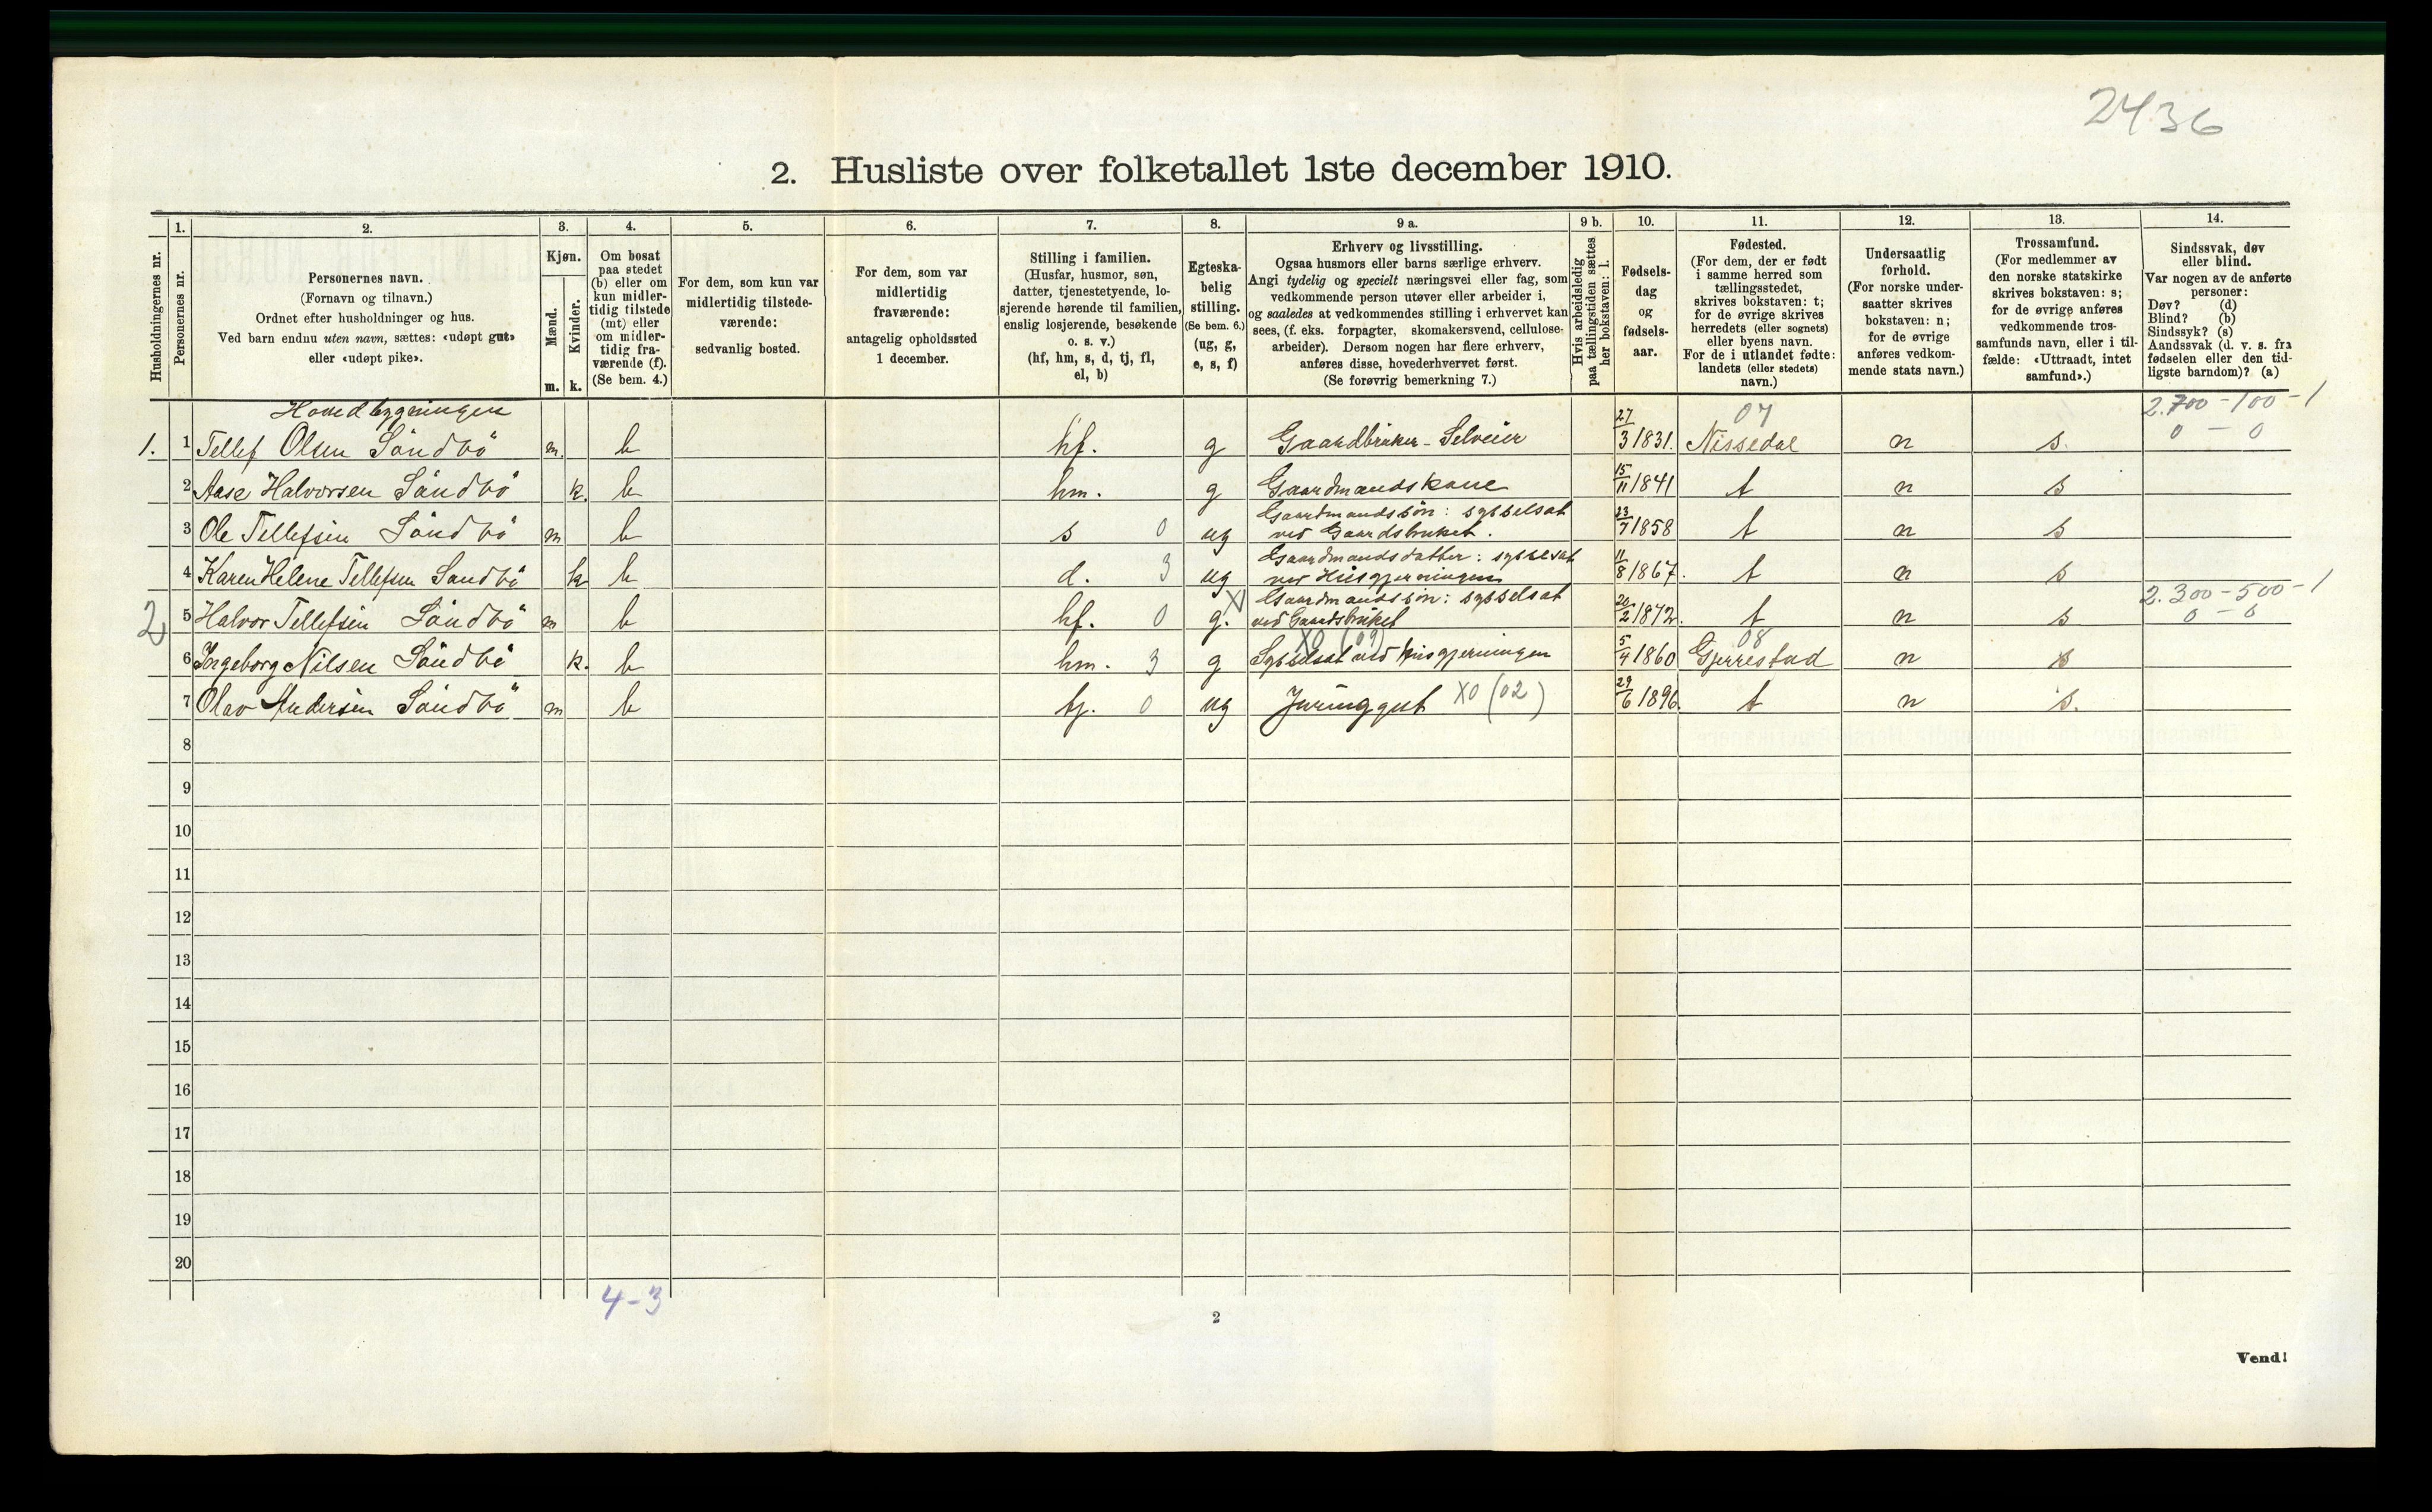 2436
2. Husliste over folketallet 1ste december 1910.
Husholdningernes nr.
1.
Personernes nr.
2.
Personernes navn.
(Fornavn og tilnavn.)
Ordnet efter husholdninger og hus.
Ved barn endnu uten navn, sættes: «udøpt gut»
eller «udøpt pike».
3.
Kjøn.
Mænd.
Kvinder.
m. k.
4.
Om bosat
paa stedet
(b) eller om
kun midler-
tidig tilstede
(mt) eller
om midler-
tidig fra-
værende (f).
(Se bem. 4.)
5.
For dem, som kun var
midlertidig tilstede-
værende:
sedvanlig bosted.
6.
For dem, som var
midlertidig
fraværende:
antagelig opholdssted
1 december.
7.
Stilling i familien.
(Husfar, husmor, søn,
datter, tjenestetyende, lo-
sjerende hørende til familien,
enslig losjerende, besøkende
o. s. v.)
(hf, hm, s, d, tj, fl,
el, b)
8.
Egteska-
belig
stilling.
(Se bem. 6.)
(ug, g,
e, s, f)
9 a.
Erhverv og livsstilling.
Ogsaa husmors eller barns særlige erhverv.
Angi tydelig og specielt næringsvei eller fag, som
vedkommende person utøver eller arbeider i,
og saaledes at vedkommendes stilling i erhvervet kan
sees, (f. eks. forpagter, skomakersvend, cellulose-
arbeider). Dersom nogen har flere erhverv,
anføres disse, hovederhvervet først.
(Se forøvrig bemerkning 7.)
9 b.
Hvis arbeidsledig
paa tællingstiden sættes
her bokstaven: l.
10.
Fødsels-
dag
og
fødsels-
aar.
11.
Fødested.
(For dem, der er født
i samme herred som
tællingsstedet,
skrives bokstaven: t;
for de øvrige skrives
herredets (eller sognets)
eller byens navn.
For de i utlandet fødte:
landets (eller stedets)
navn.)
12.
Undersaatlig
forhold.
(For norske under-
saatter skrives
bokstaven: n;
for de øvrige
anføres vedkom-
mende stats navn.)
13.
Trossamfund.
(For medlemmer av
den norske statskirke
skrives bokstaven: s;
for de øvrige anføres
vedkommende tros-
samfunds navn, eller i til-
fælde: «Uttraadt, intet
samfund».)
14.
Sindssvak, døv
eller blind.
Var nogen av de anførte
personer:
Døv? (d)
Blind? (b)
Sindssyk? (s)
Aandssvak (d. v. s. fra
fødselen eller den tid-
ligste barndom)? (a)
Hovedbygningen 07 2.700 - 100 - 1
1. 1 Tellef Olsen Söndbö m. b hf. g Gaardbruker - Selveier 27/3 1831. Nissedal n s. 0 - 0
2 Aase Halvorsen Söndbö k. b hm. g Gaardmandskone 15/11 1841 t n s
3 Ole Tellefsen Söndbö m b s 0 ug Gaardmandssön: sysselsat
ved Gaardsbruket. 23/7 1858 t n s
4 Karen Helene Tellefsen Söndbö k b d. 3 ug Gaardmandsdatter: sysselsat
ved Husgjerningen 11/8 1867. t n s
2 5 Halvor Tellefsen Söndbö m b hf. 0 g. X Gaardmandssön: sysselsat
ved Gaardsbruket 20/2 1872. t n s 2.300 - 500 - 1
0 - 0
6 Ingeborg Nilsen Söndbö k. b hm. 3 g X0 (09) Sysselsat ved husgjerningen 5/4 1860 08 Gjerrestad n s
7 Olav Andersen Söndbö m b tj. 0 ug Juringgut X0 (02) 29/6 1896. t n s.
8
9
10
11
12
13
14
15
16
17
18
19
20
4-3
2
Vend!